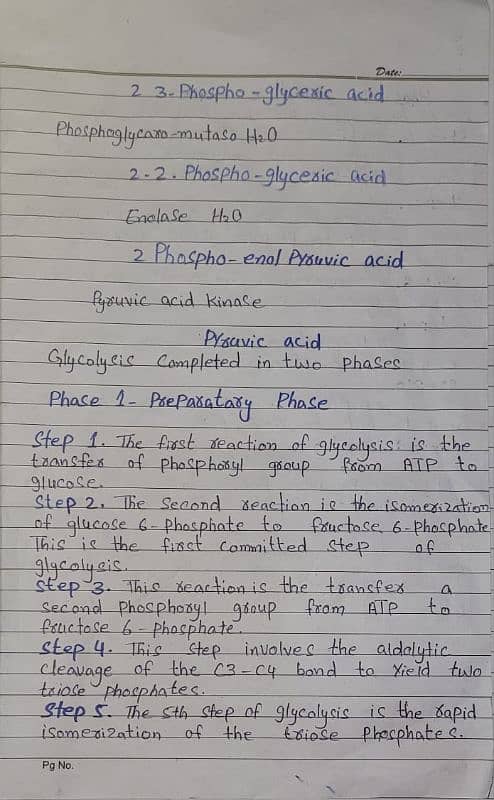 Date:
2 3-Phospho-glyceric acid
Phosphoglycaro-mutaso H2O
2-2-Phospho-glyceric acid
Enolase H2O
2 Phospho-enol Pyruvic acid
Pyruvic acid Kinase
Pyruvic acid
Glycolysis Completed in two Phases
Phase 1- Preparatary Phase
Step 1. The first reaction of glycolysis is the
transfer of phosphoryl group from ATP to
glucose.
Step 2. The Second reaction is the isomerization
of glucose 6-phosphate to fructose 6-phosphate
This is the first Committed Step of
glycolysis.
Step 3. This reaction is the transfer a
Second Phosphoryl group from ATP to
fructose 6-phosphate.
Step 4. This Step involves the aldolytic
Cleavage of the C3-C4 bond to Yield two
triose phosphates.
Step 5. The 5th Step of glycolysis is the rapid
isomerization of the triose Phosphates.
Pg No.